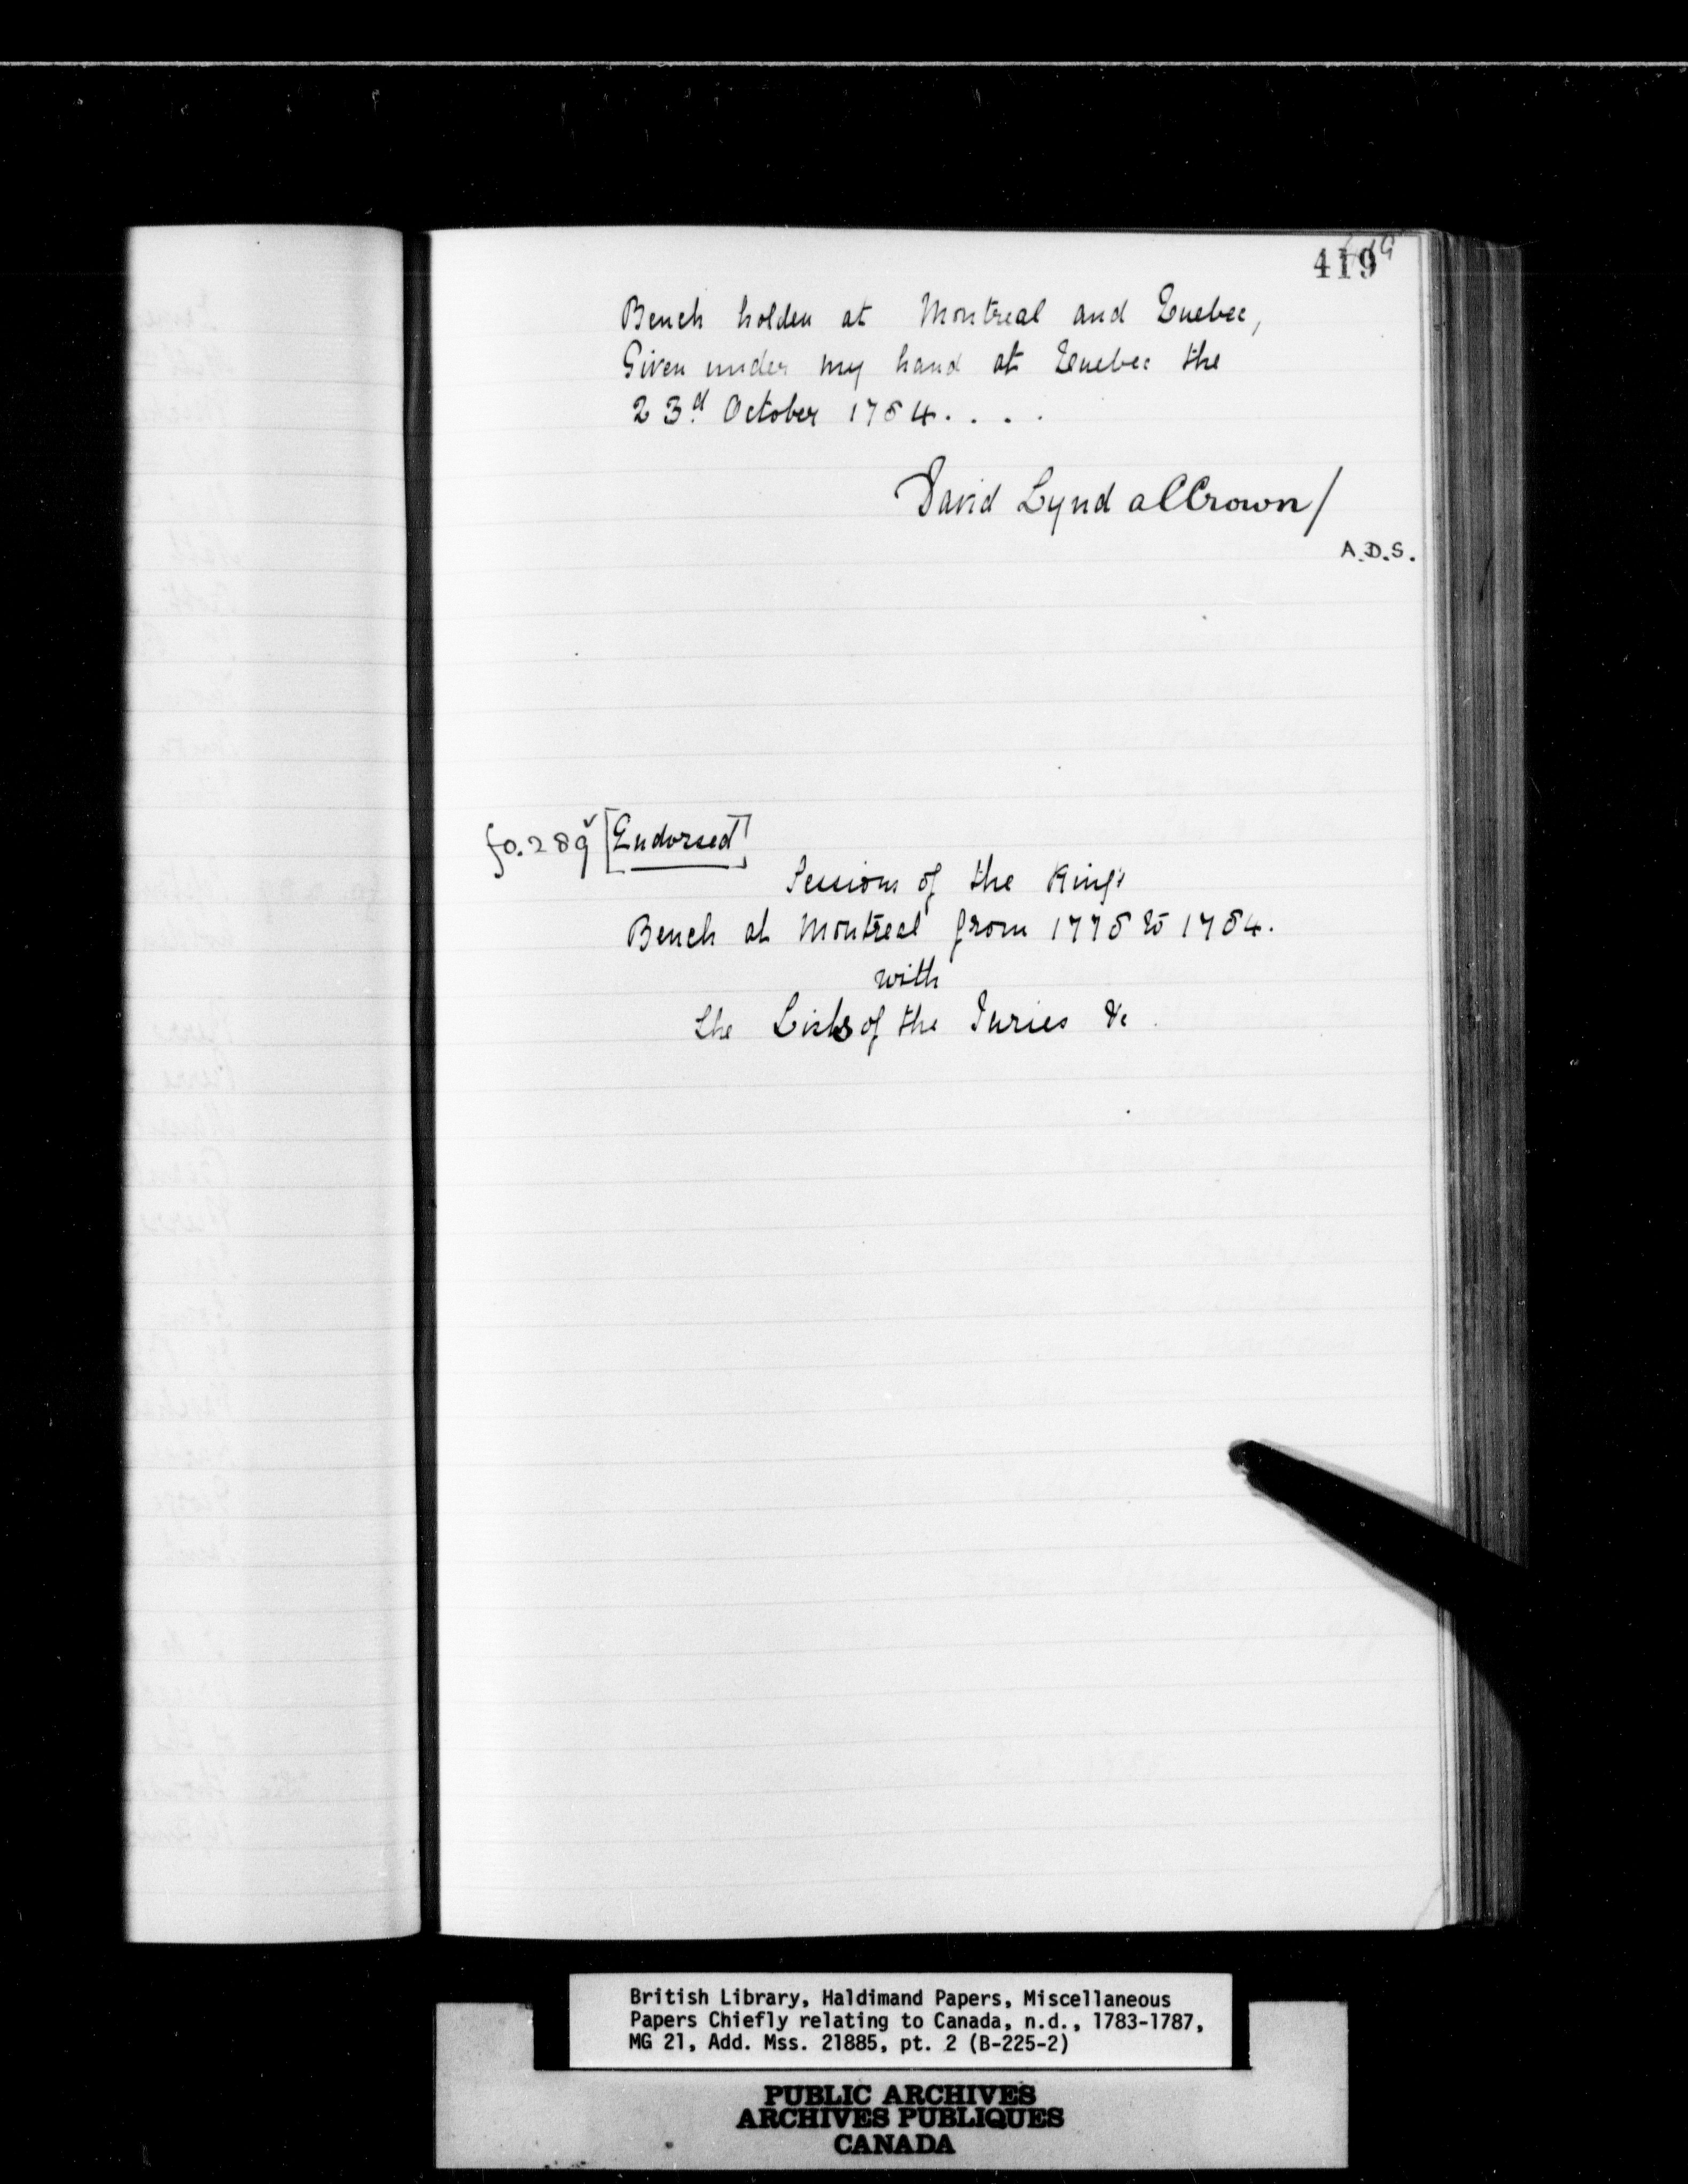 419
419
Bench holden at Montreal and Quebec,
Given under my hand at Quebec the
23d October 1784. . . .
David Lynd a C Crown/
A.D.S.
fo. 289v [Endorsed]
Sessions of the King's
Bench at Montreal from 1778 to 1784.
with
the Lists of the Juries &c
British Library, Haldimand Papers, Miscellaneous
Papers Chiefly relating to Canada, n.d., 1783-1787,
MG 21, Add. Mss. 21885, pt. 2 (B-225-2)
PUBLIC ARCHIVES
ARCHIVES PUBLIQUES
CANADA